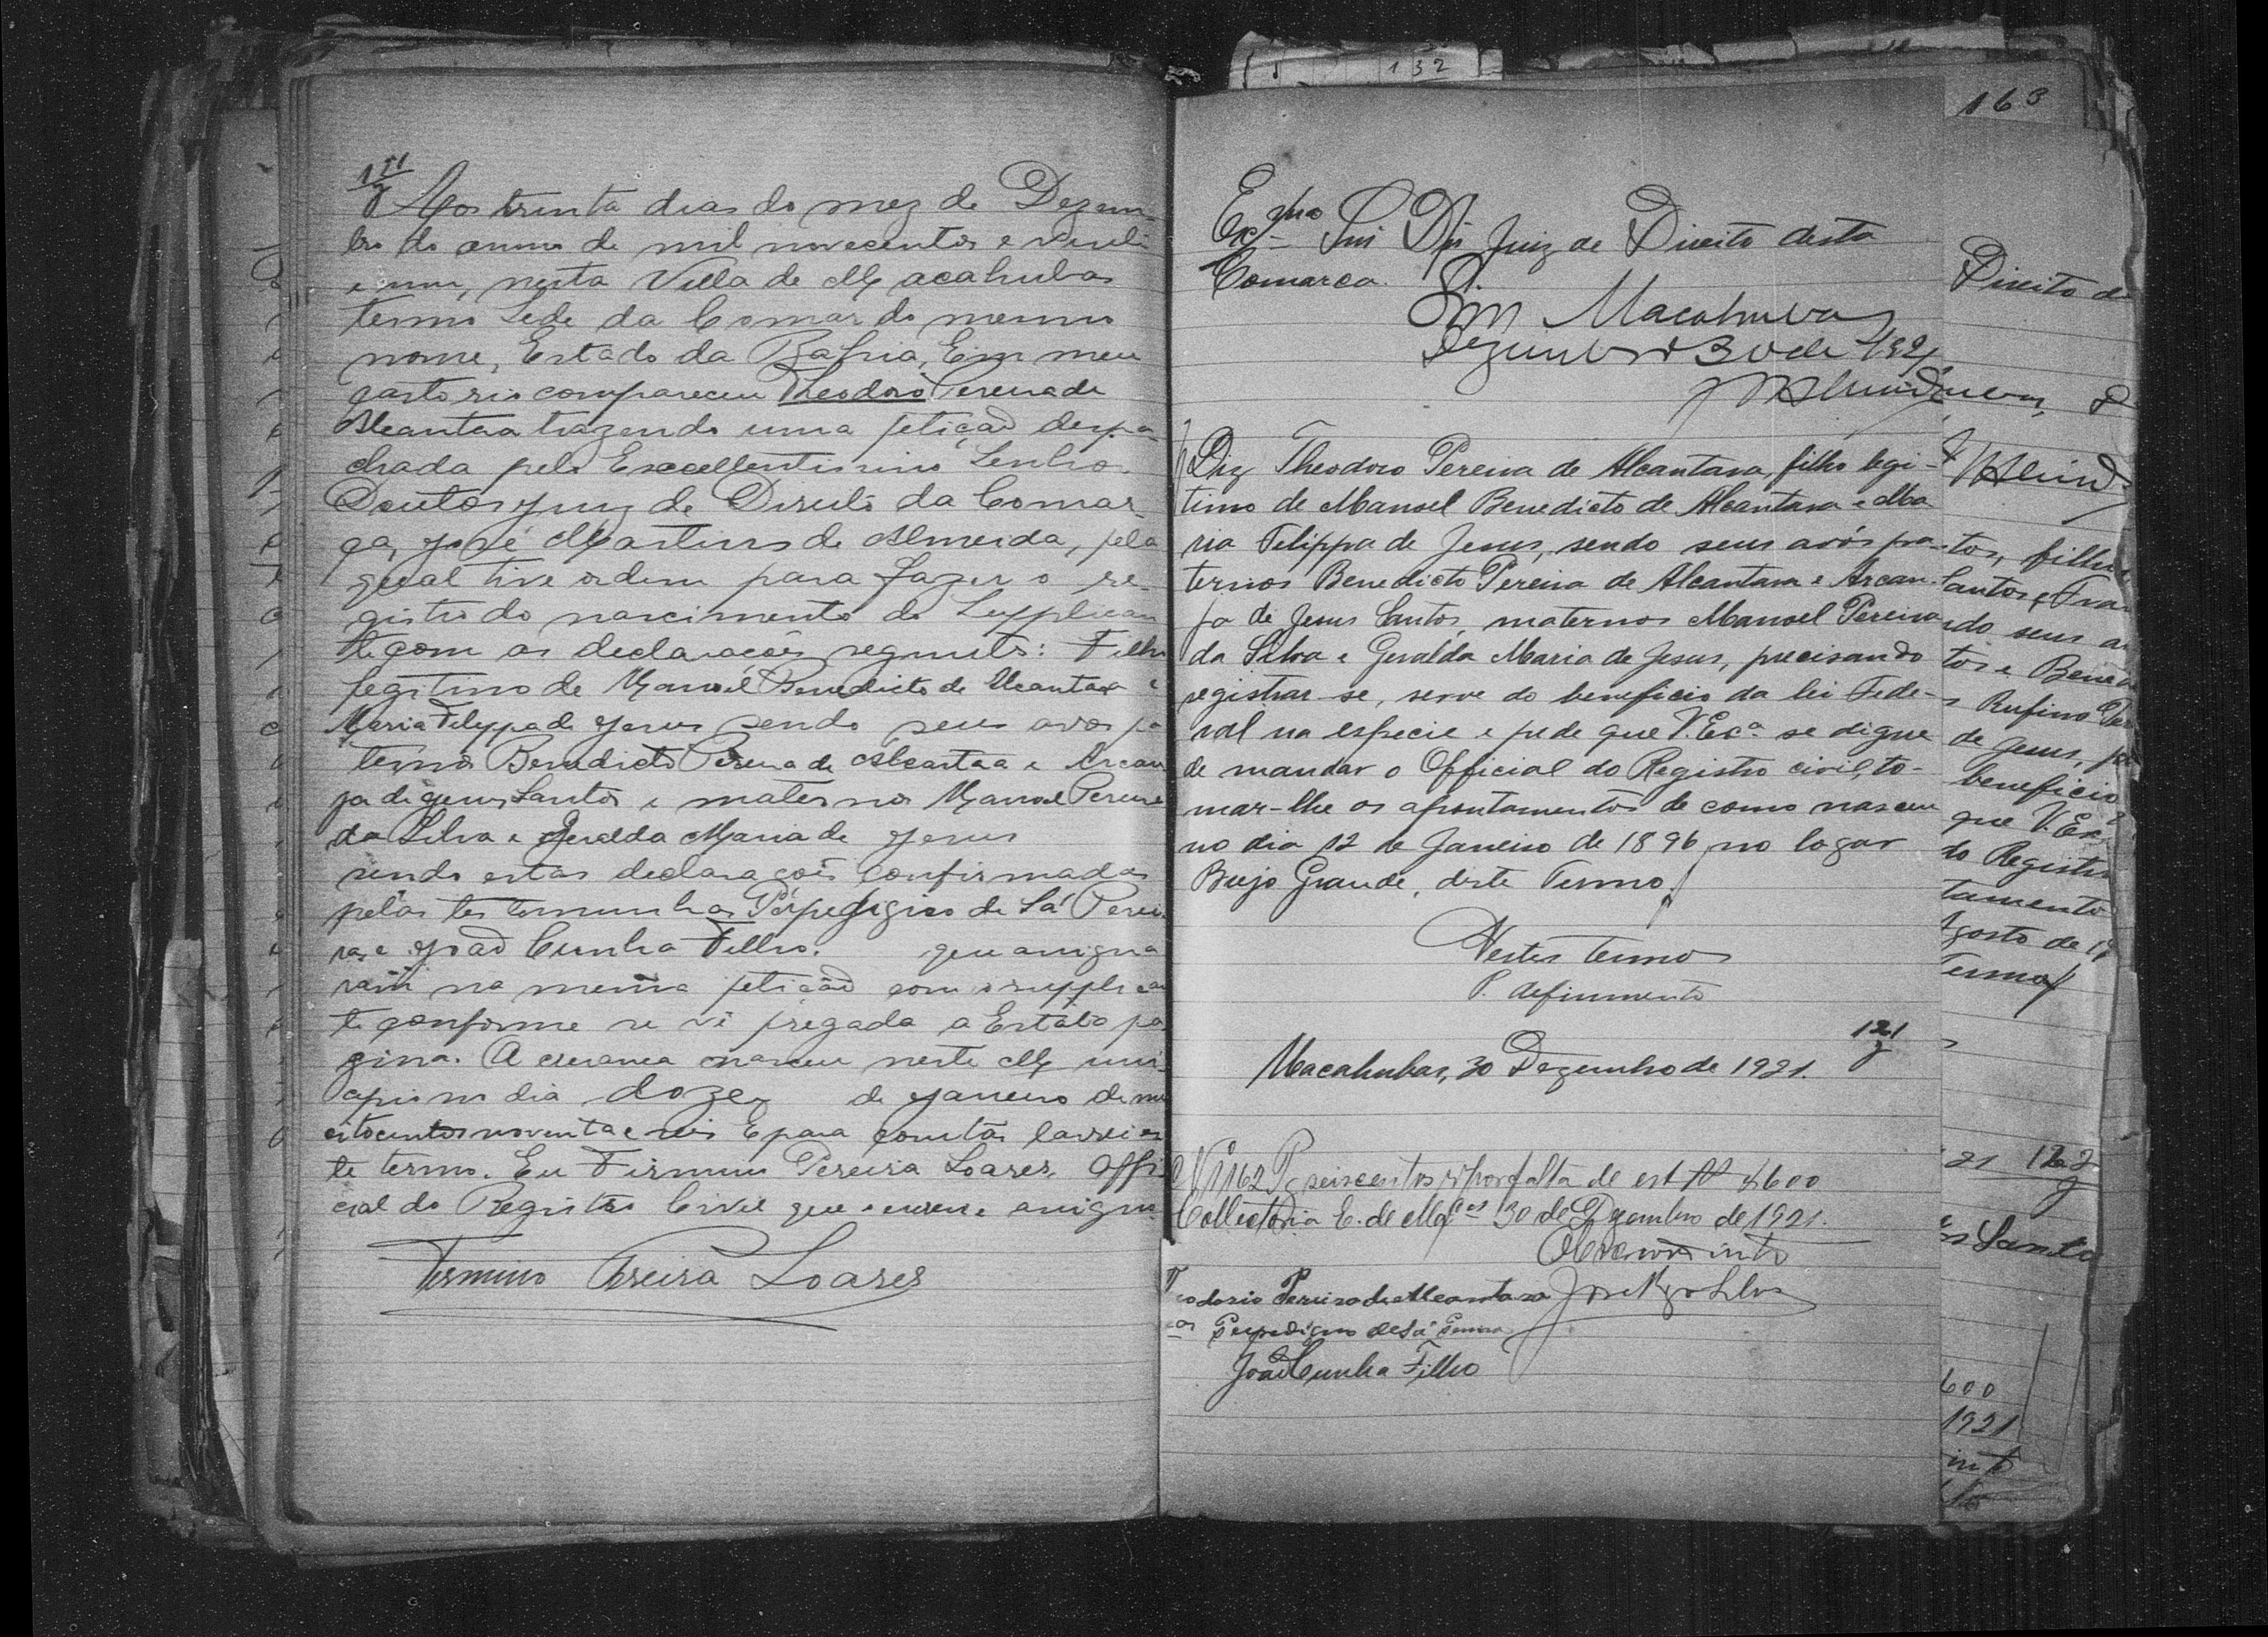 121
Aos trinta dias do mez de Dezem-
bro do anno de mil novecentos e vinte
e um, nesta Villa de Macahubas
termo Sede da Comar do mesmo
nome, Estado da Bahia, Em meu
cartorio compareceu Theodoro Pereira de
Alcantra trazendo uma petiçaõ despa-
chada pelo Excellentissimo Senhor
Doutor Juiz de Direito da Comar-
ca, José Martins de Almeida, pela
qual tive ordem para fazer o re-
gistro do nascimento do Supplican
te com as declarações seguints: Filho
legitimo de Manoel Benedicto de Alcantara e
Maria Filippa de Jesus sendo seus avos pa
ternos Benedicto Pereira de Alcantra e Arcan
ja de Jesus Santos e maternos Manoel Pereira
da Silva e Geralda Maria de Jesus
sendo estas declarações confirmadas
pelas testemunhas de Sá Perei
ra, e Joaõ Cunha Filho. que assigna
ram na mesma petiçaõ com o supplican
te conforme se vê pregada a Estatá pa
gina. A creança nasceu neste Muni-
cipio no dia doze de Janeiro de mil
oitocentos noventa e seis E para constar lavrei es
te termo. Eu Firmino Pereira Soares, Offi
cial do Registro Civil que escrevi e assigno.
Firmino Pereira Soares
132
163
Exmo Snr Dr Juiz de Direito desta
Comarca.
Sim Macahubas
Dezembro 30 de 1921
Diz Theodoro Pereira de Alcantara, filho legi-
timo de Manoel Benedicto de Alcantara e Ma
ria Felippa de Jesus, sendo seus avós pa-
ternos Benedicto Pereira de Alcantara e Arcan-
ja de Jesus Santos, maternos Manoel Pereira
da Silva e Geralda Maria de Jesus, precisando
registrar-se, serve do beneficio da lei Fede-
ral na especie e pede que V. Exª se digne
de mandar o Official do Registro civil, to-
mar-lhe os apontamentos de como nasceu
no dia 12 de Janeiro de 1896, no logar
Brejo Grande, deste Termo.
Nestes termos
P. deferimento
121
Macahubas, 30 Dezembro de 1921.
Nº 1162 Pg seiscentos rs por falta de est. Rs $600
Collectoria E. de Macas 30 de Dezembro de 1921.
Teodorio Pereira de Alcantara José
de Sá Pereira
João Cunha Filho
Direito d
tos, filho
Santos e Fran
ndo seus a
tos e Bene
Rufino
de Jesus,
beneficio
que V. Exª
do Registro
tamento
Agosto de 1
Termo
21 122
Santo
600
1921